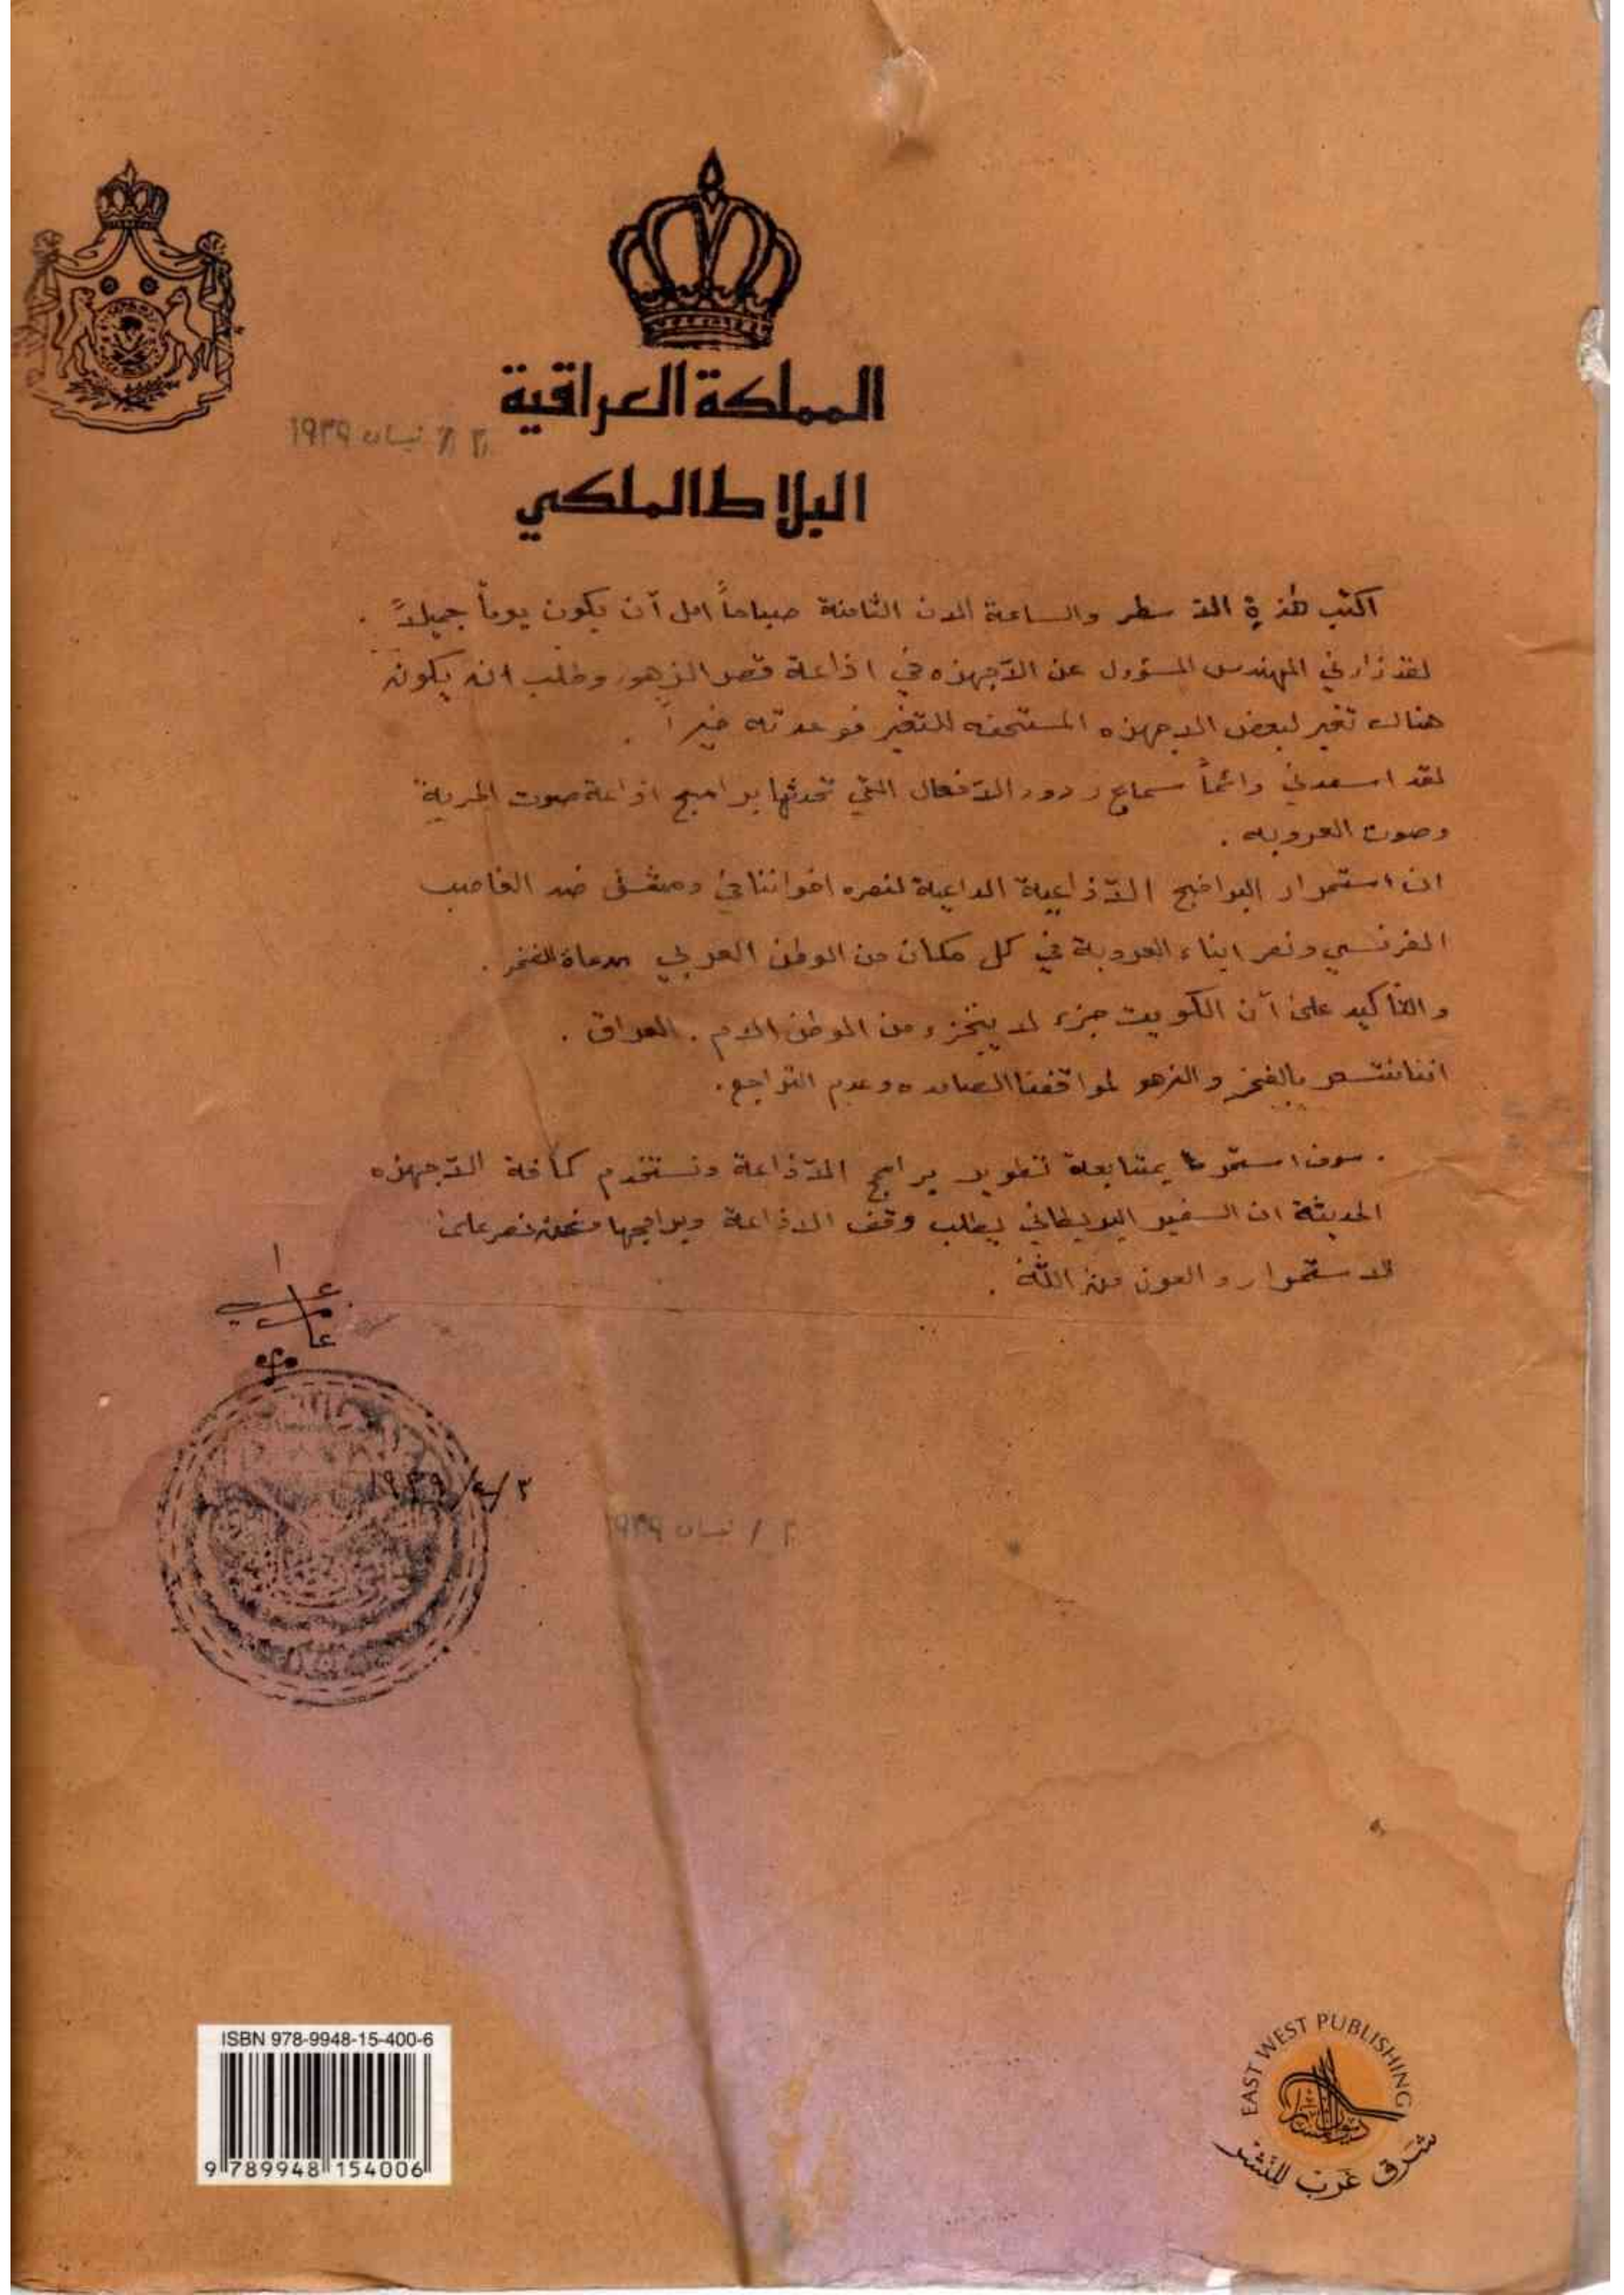 المملكة العراقية
٢ / نيسان ١٩٣٩
البلاط الملكي
اكتب هذة الاسطر والساعة الان الثامنة صباحاً امل آن يكون يوماً جميلاً .
لقد زارني المهندس المسؤول عن الآجهزه في اذاعة قصر الزهور وطلب ان يكون
هناك تغير لبعض الاجهزه المستحقه للتغير فوعدته خيراً .
لقد اسعدني دائماً سماع ردود الآفعال التي تحدثها برامج اذاعة صوت الحرية
وصوت العروبه .
ان استمرار البرامج الآذاعية الداعية لنصره اخواننا في دمشق ضد الغاصب
الفرنسي ونصر ابناء العروبة في كل مكان من الوطن العربي مدعاة للفخر .
والتآكيد على آن الكويت جزء لا يتجزء من الوطن الام . العراق .
اننا نشعر بالفخر والزهو لمواقفنا الصامده وعدم التراجع .
. سوف استمر بمتابعة تطوير برامج الآذاعة ونستخدم كآفة الآجهزه
الحديثة ان السفير البريطاني يطلب وقف الاذاعة وبرامجها ونحن نصر على
الاستمرار والعون من اللّة .
٢/٤/١٩٣٩
٢ / نيسان ١٩٣٩
ISBN 978-9948-15-400-6
9 789948 154006
EAST WEST PUBLISHING
شرق غرب للنشر